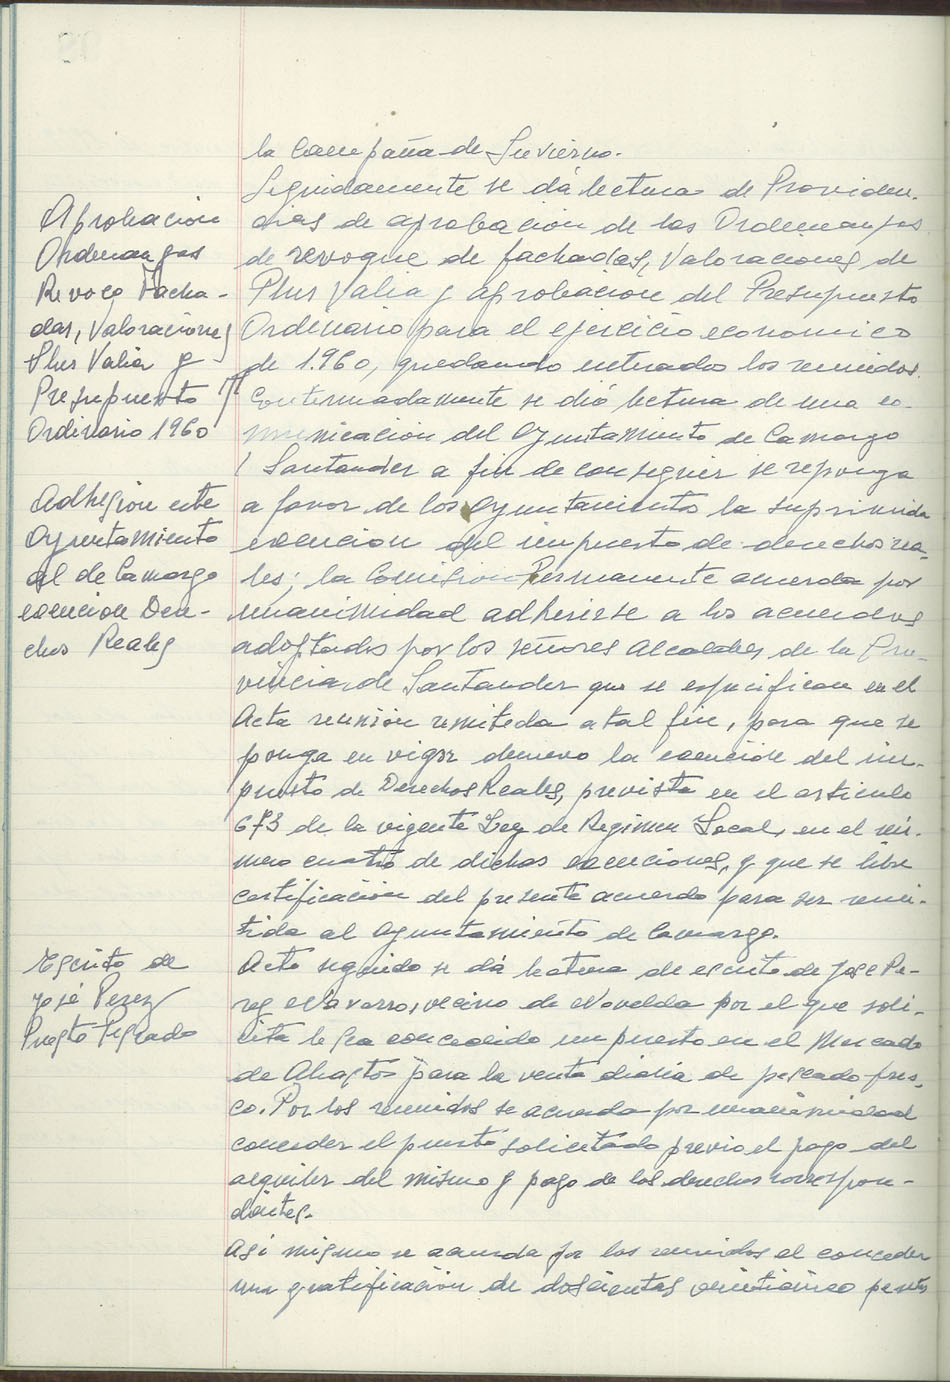 la Campaña de Invierno.
Seguidamente se dá lectura de Providen-
cias de aprobación de las Ordenanzas
de revoque de fachadas, Valoraciones de
Plus Valia y aprobacion del Presupuesto
Ordinario para el ejercicio economico
de 1.960, quedando enterados los reunidos.
Continuadamente se dió lectura de una co-
municacion del Ayuntamiento de Camargo
(Santander a fin de conseguir se reponga
a favor de los Ayuntamientos la suprimida
exencion del impuesto de derechos rea-
les; la Comision Permanente acuerda por
unanimidad adherirse a los acuerdos
adoptados por los señores Alcaldes de la Pro-
vincia de Santander que se especifican en el
Acta reunión remitida a tal fin, para que se
ponga en vigor denuevo la exencion del im-
puesto de Derechos Reales, prevista en el articulo
673 de la vigente Ley de Regimen Local, en el nú-
mero cuatro de dichas exenciones, y que se libre
certificación del presente acuerdo para ser remi-
tida al Ayuntamiento de Camargo.
Acto seguido se dá lectura de escrito de Jose Pe-
rez Navarro, vecino de Novelda por el que soli-
cita le sea concedido un puesto en el Mercado
de Abastos para la venta diaria de pescado fres-
co. Por los reunidos se acuerda por unanimidad
conceder el puesto solicitado previo el pago del
alquiler del mismo y pago de los derechos correspon-
dientes.
Asi mismo se acuerda por los reunidos el conceder
una gratificación de doscientas veinticinco pesetas
Aprobacion
Ordenanzas
Revoco Facha-
das, Valoraciones
Plus Valia y
Presupuesto
Ordinario 1960
Adhesion este
Ayuntamiento
al de Camargo
exencion Dere-
chos Reales
Escrito de
José Perez
Puesto Pescado